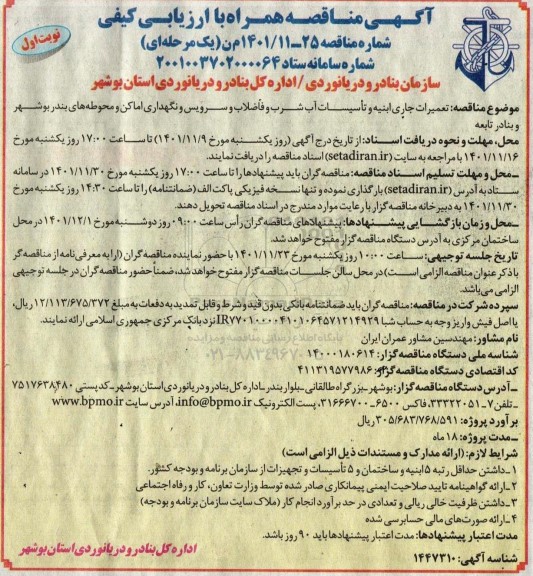 آگهی مناقصه همراه با ارزیابی کیفی
نوبت اول
شماره مناقصه ۲۵-۱۴۰۱/۱۱م ن (یک مرحله‌ای)
شماره سامانه ستاد ۲۰۰۱۰۰۳۷۰۲۰۰۰۰۶۴
سازمان بنادر و دریانوردی / اداره کل بنادر و دریانوردی استان بوشهر
موضوع مناقصه: تعمیرات جاری ابنیه و تأسیسات آب شرب و فاضلاب و سرویس و نگهداری اماکن و محوطه‌های بندر بوشهر
و بنادر تابعه
محل، مهلت و نحوه دریافت اسناد: از تاریخ درج آگهی (روز یکشنبه مورخ ۱۴۰۱/۱۱/۹) تا ساعت ۱۷:۰۰ روز یکشنبه مورخ
۱۴۰۱/۱۱/۱۶ با مراجعه به سایت (setadiran.ir) اسناد مناقصه را دریافت نمایند.
ـ محل و مهلت تسلیم اسناد مناقصه: مناقصه گران باید پیشنهادها را تا ساعت ۱۷:۰۰ روز یکشنبه مورخ ۱۴۰۱/۱۱/۳۰ در سامانه
ستاد به آدرس (setadiran.ir) بارگذاری نموده و تنها نسخه فیزیکی پاکت الف (ضمانتنامه) را تا ساعت ۱۴:۳۰ روز یکشنبه مورخ
۱۴۰۱/۱۱/۳۰ به دبیرخانه مناقصه گزار با رعایت موارد مندرج در اسناد مناقصه تحویل دهند.
ـ محل و زمان بازگشایی پیشنهادها: پیشنهادهای مناقصه گران رأس ساعت ۰۹:۰۰ روز دوشنبه مورخ ۱۴۰۱/۱۲/۱ در محل
ساختمان مرکزی به آدرس دستگاه مناقصه گزار مفتوح خواهد شد.
تاریخ جلسه توجیهی: ساعت ۱۰:۰۰ روز یکشنبه مورخ ۱۴۰۱/۱۱/۲۳ با حضور نماینده مناقصه گران (ارائه معرفی نامه از مناقصه گر
با ذکر عنوان مناقصه الزامی است) در محل سالن جلسات مناقصه گزار مفتوح خواهد شد، ضمناً حضور مناقصه گران در جلسه توجیهی
الزامی می‌باشد.
سپرده شرکت در مناقصه: مناقصه گران باید ضمانتنامه بانکی بدون قید و شرط و قابل تمدید به دفعات به مبلغ ۱۲/۱۱۳/۶۷۵/۳۷۲ ریال،
یا اصل فیش واریز وجه به حساب شبا نزد بانک مرکزی جمهوری اسلامی ارائه نمایند.
نام مشاور: مهندسین مشاور عمران ایران
شناسه ملی دستگاه مناقصه گزار: ۱۴۰۰۰۱۸۰۶۱۴
کد اقتصادی دستگاه مناقصه گزار: ۴۱۱۳۱۹۵۷۷۹۸۶
ـ آدرس دستگاه مناقصه گزار: بوشهر ـ بزرگراه طالقانی ـ بلوار بندر ـ اداره کل بنادر و دریانوردی استان بوشهر ـ کدپستی ۷۵۱۷۶۳۸۴۸۰
ـ تلفن ۷ـ۳۳۳۲۲۰۵۱، فاکس ۶۵۰۰ـ۳۱۶۶۶۷۰۰، پست الکترونیک info@bpmo.ir، آدرس سایت www.bpmo.ir
برآورد پروژه: ۳۰۵/۶۸۳/۷۶۸/۵۹۱ ریال
ـ مدت پروژه: ۱۸ ماه
شرایط لازم: (ارائه مدارک و مستندات ذیل الزامی است)
۱ـ داشتن حداقل رتبه ۵ ابنیه و ساختمان و ۵ تأسیسات و تجهیزات از سازمان برنامه و بودجه کشور.
۲ـ ارائه گواهینامه تایید صلاحیت ایمنی پیمانکاری صادر شده توسط وزارت تعاون، کار و رفاه اجتماعی
۳ـ داشتن ظرفیت خالی ریالی و تعدادی در حد برآورد انجام کار (ملاک سایت سازمان برنامه و بودجه)
۴ـ ارائه صورت‌های مالی حسابرسی شده
مدت اعتبار پیشنهادها: مدت اعتبار پیشنهادها باید ۹۰ روز باشد.
شناسه آگهی: ۱۴۴۷۳۱۰
اداره کل بنادر و دریانوردی استان بوشهر